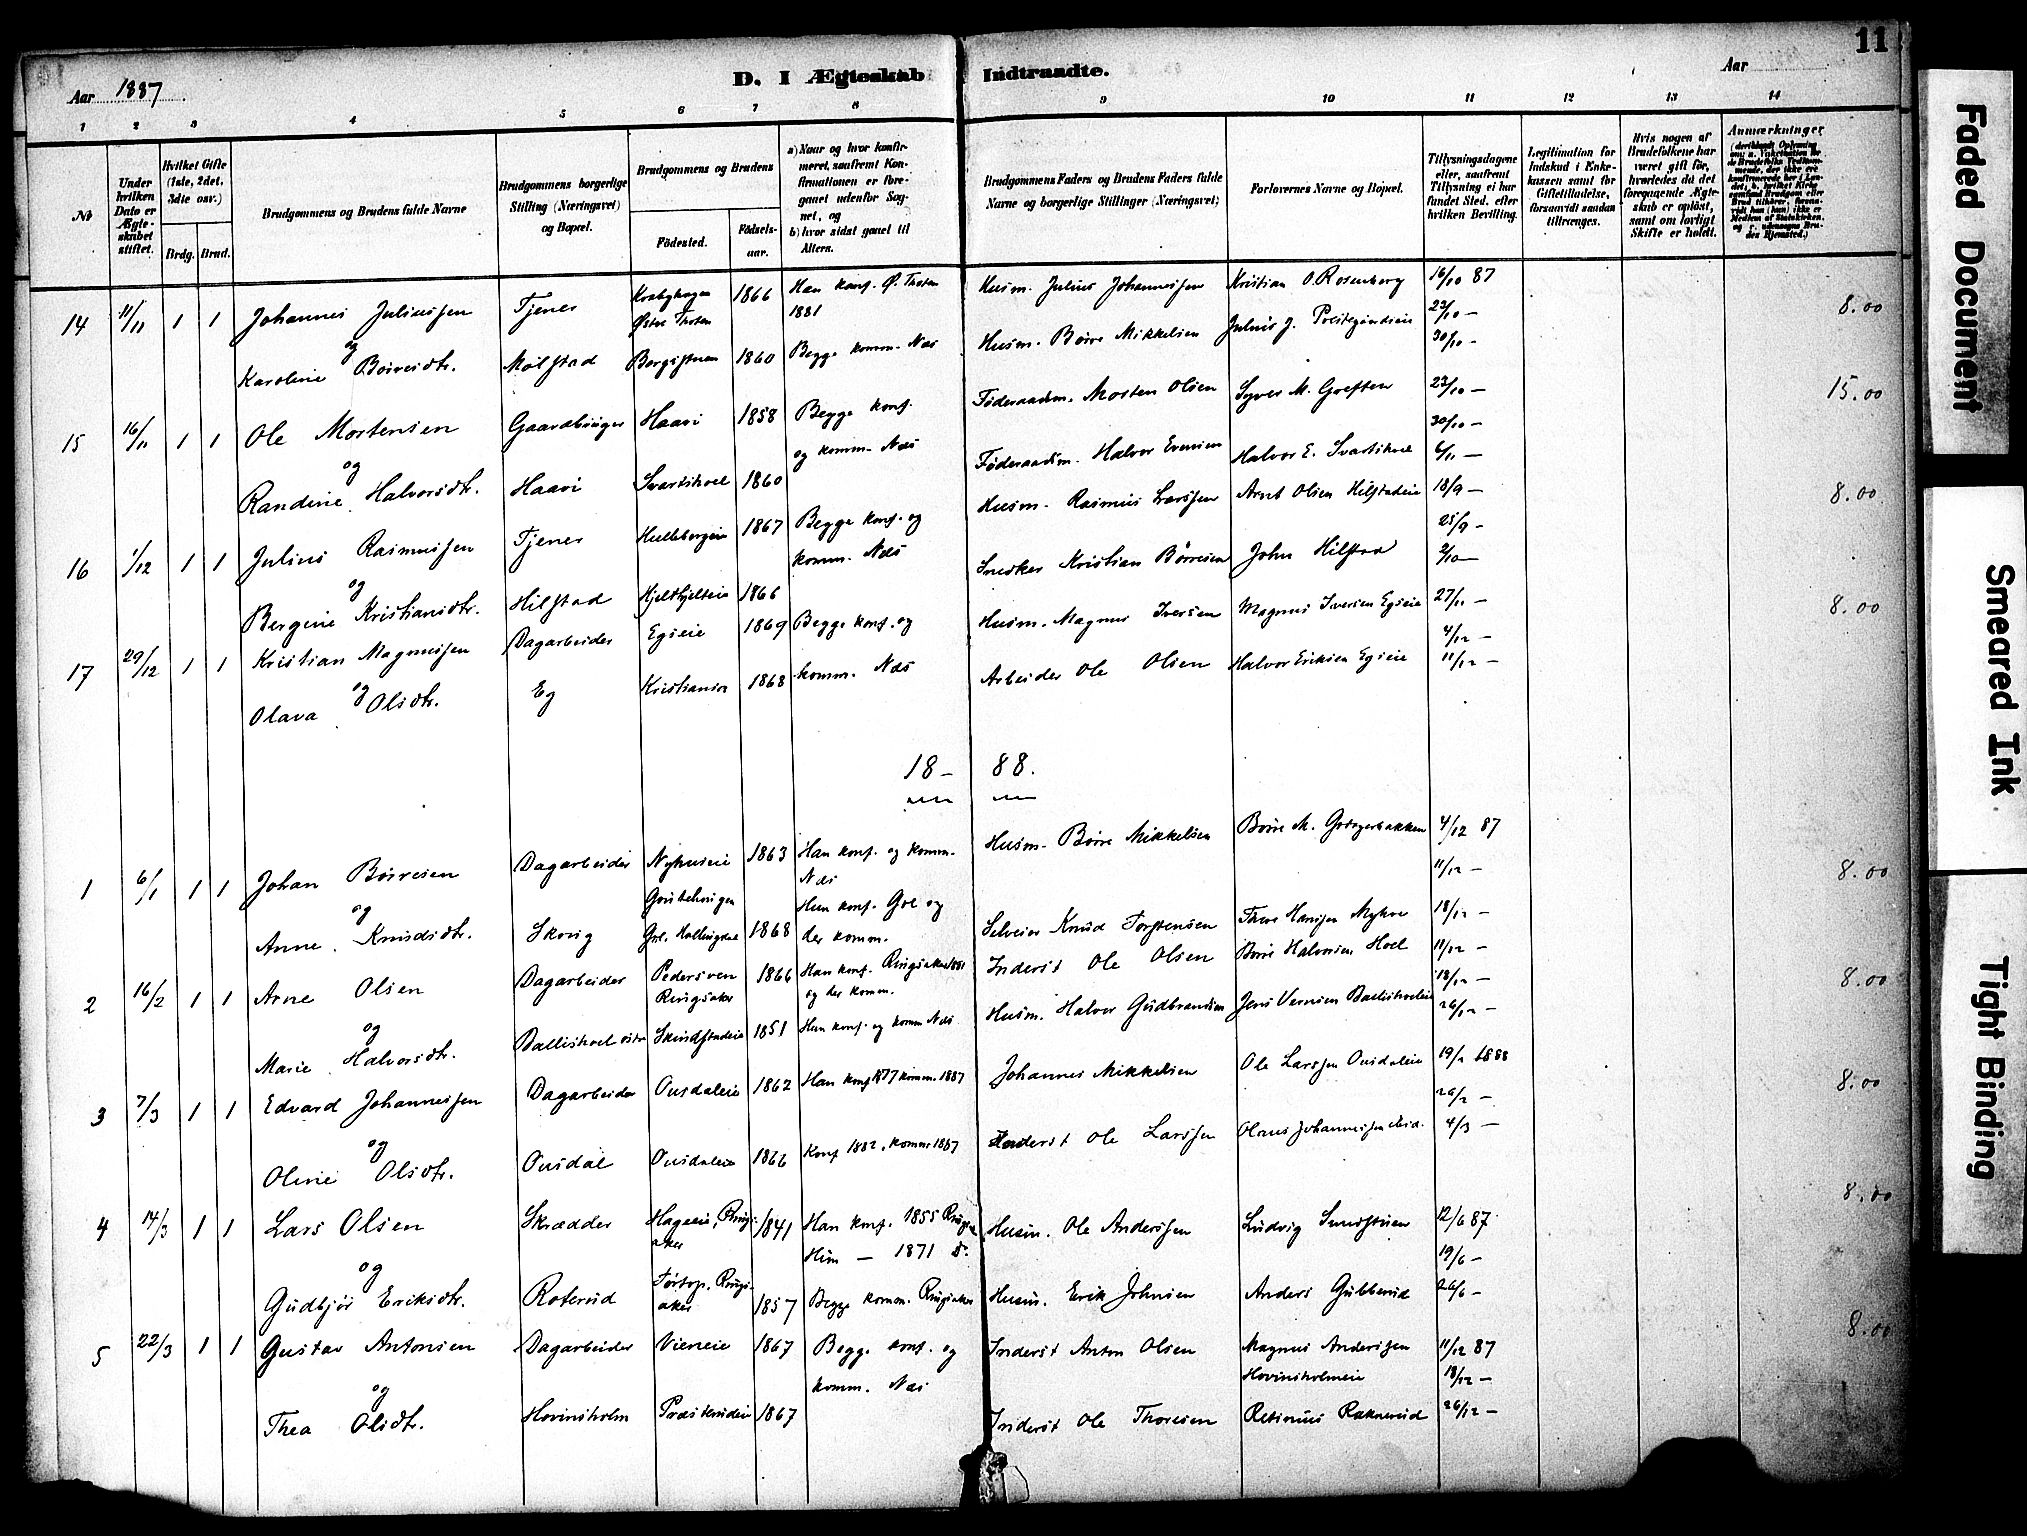 11
Aar 1887
D. I Ægteskab Indtraadte.
Aar
1 2 3 4 5 6 7 8 9 10 11 12 13 14
No
Under hvilken Dato er Ægteskabet stiftet.
Hvilket Gifte (1ste, 2det, 3die osv.)
Brdg. Brud.
Brudgommens og Brudens fulde Navne
Brudgommens borgerlige Stilling (Næringsvei) og Bopæl.
Brudgommens og Brudens
Födested.
Födselsaar.
a) Naar og hvor konfirmeret, saafremt Konfirmationen er foregaaet udenfor Sognet, og
b) hvor sidst gaaet til Alters.
Brudgommens Faders og Brudens Faders fulde Navne og borgerlige Stillinger (Næringsvei)
Forlovernes Navne og Bopæl.
Tillysningsdagene eller, saafremt Tillysning ei har fundet Sted, efter hvilken Bevilling.
Legitimation for Indskud i Enkekassen samt for Giftetilladelse, forsaavidt saadan tiltrænges.
Hvis nogen af Brudefolkene har været gift för, hvorledes da det foregaaende Ægteskab er oplöst, samt om lovligt Skifte er holdt.
Anmærkninger
14 11/11 1 1 Johannes Juliussen Tjener Krabyhagen Østre Thoten 1866 Han konf. Ø. Thoten 1881 Husm. Julius Johannessen Kristian O. Rosenberg 16/10 87 8.00
23/10 –
og
Karoline Börresdtr. Molstad Borgistuen 1860 Begge komm. Næs Husm. Börre Mikkelsen Julius J. Prestegaardseie 30/10 –
15 16/11 1 1 Ole Mortensen Gaardbruger Haavi 1858 Begge konf. Föderaadsm. Morten Olsen Syver M. Greften 23/10 – 15.00
30/10 –
og
Randine Halvorsdtr. Haavi Svartshoel 1860 og komm. Næs Föderaadsm. Halvor Evensen Halvor E. Svartshoel 6/11 –
16 1/12 1 1 Julius Rasmussen Tjener Hullebergeie 1867 Begge konf. og Husm. Rasmus Larssen Arnt Olsen Hilstadeie 18/9 – 8.00
25/9 –
og
Bergine Kristiansdtr. Hilstad Kjeltkjelteie 1866 komm. Næs Snedker Kristian Börresen John Hilstad 2/10 –
17 29/12 1 1 Kristian Magnussen Dagarbeider Egseie 1869 Begge konf. og Husm. Magnus Iversen Magnus Iversen Egseie 27/11 – 8.00
4/12 –
og
Olava Olsdtr. Eg Kristiania 1868 komm. Næs Arbeider Ole Olsen Halvor Eriksen Egseie 11/12 –
18 – 88.
1 6/1 1 1 Johan Börresen Dagarbeider Nyhuseie 1863 Han konf. og komm. Næs Husm. Börre Mikkelsen Börre M. 4/12 87 8.00
11/12 –
og
Anne Knudsdtr. Skovig Gol. Hallingdal 1868 Hun konf. Gol og der komm. Selveier Knud Torstensen Thore Hanssen 18/12 –
2 16/2 1 1 Arne Olsen Dagarbeider Pedersven Ringsaker 1866 Han konf. Ringsaker 1881 og der komm. Inderst Ole Olsen Börre Halvorsen Hoel 11/12 – 8.00
18/12 –
og
Marie Halvorsdtr. Ballishoel östre Skindstadeie 1851 Hun konf. og komm Næs Husm. Halvor Gudbrandsen Jens Versen Ballishoeleie 26/12 –
3 7/3 1 1 Edvard Johannessen Dagarbeider Ousdaleie 1862 Han konf 1877 komm. 1887 Johannes Mikkelsen Ole Larssen Ousdaleie 19/2 1888 8.00
26/2 –
og
Oline Olsdtr. Ousdal Ousdaleie 1866 Konf 1882, komm. 1887 Inderst Ole Larssen Olaus Johannessen ibid. 4/3 –
4 14/3 1 1 Lars Olsen Skrædder Hageeie, Ringsaker 1841 Han konf. 1855 Husm. Ole Anderssen Ludvig Smedstuen 12/6 87 8.00
Hun – 1871 do. 19/6 –
og
Gudbjör Eriksdtr. Roterud Förtop. Ringsaker 1857 Begge komm. Ringsaker Husm. Erik Johnsen Anders Gubberud 26/6 –
5 22/3 1 1 Gustav Antonsen Dagarbeider Vieneie 1867 Begge konf. og Inderst Anton Olsen Magnus Anderssen Hovinsholmeie 11/12 87 8.00
18/12 –
og
Thea Olsdtr. Hovinsholm Præsterudeie 1867 komm. Næs Inderst Ole Thoresen Retinius Raknerud 26/12 –
Faded Document
Smeared Ink
Tight Binding